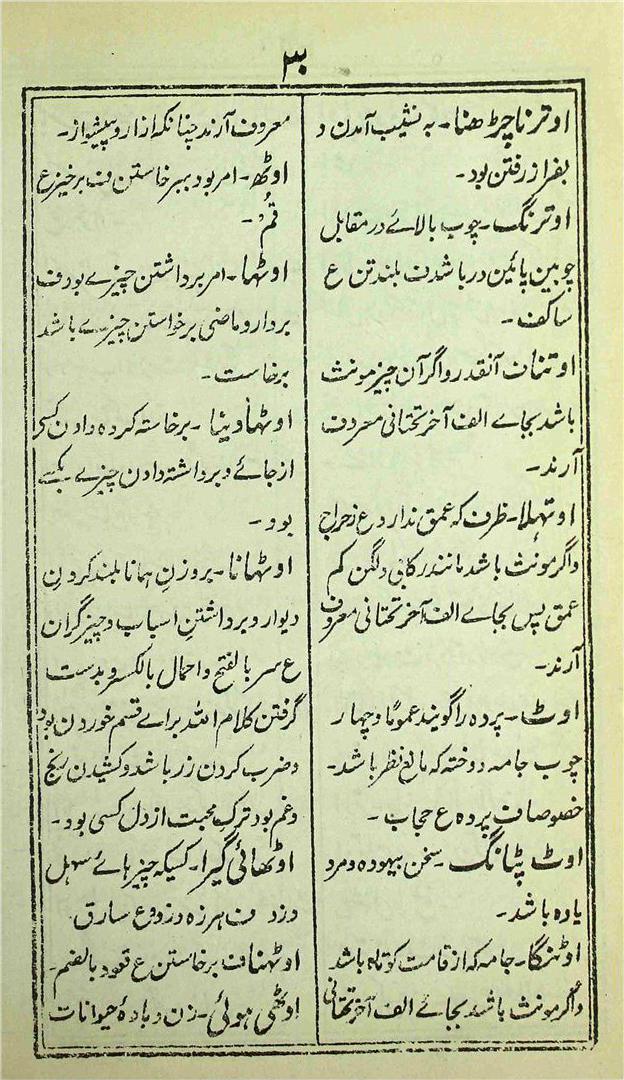 ۳۰
اوترنا چڑھنا۔ بہ نشیب آمدن و
بفراز رفتن بود۔
اوترنگ۔ چوب بالائے در مقابل
چوبین پائین در باشد ف بلندتن ع
ساکف۔
اوتنا ف آنقدر و اگر آن چیز مونث
باشد بجاے الف آخر تحتانی معروف
آرند۔
اوتھلا۔ ظرف کہ عمق ندارد ع زحراح
و اگر مونث باشد مانند رکابی و لگن کم
عمق پس بجاے الف آخر تحتانی معروف
آرند۔
اوٹ۔ پردہ را گویند عموماً و چہار
چوب جامہ دوختہ کہ مانع نظر باشد۔
خصوصا ف پردہ ع حجاب۔
اوٹ پٹانگ۔ سخن بیہودہ و مرد
یادہ باشد۔
اوٹنگا۔ جامہ کہ از قامت کوتاہ باشد
و اگر مونث باشد بجائے الف آخر تحتانی
معروف آرند چنانکہ ازار و پیشواز۔
اوٹھ۔ امر بود ببرخاستن ف برخیز ع
قُم۔
اوٹھا۔ امر برداشتن چیزے بود ف
بردار و ماضی برخواستن چیزے باشد
برخاست۔
اوٹھا دینا۔ برخاستہ کردہ دادن کسی
از جائے و برداشتہ دادن چیزے بکسے
بود۔
اوٹھانا۔ بروزنِ ہمانا بلند کردنِ
دیوار و برداشتنِ اسباب و چیز گران
ع سر بالفتح و احمال بالکسر و بدست
گرفتن کلام اللہ براے قسم خوردن بود
و ضرب کردن زر باشد و کشیدن رنج
و غم بود ترک محبت از دل کسی بود۔
اوٹھائی گیرا۔ کسیکہ چیز ہائے سہل
دزد ف ہرزہ دزد و ع سارق
اوٹھنا ف برخاستن ع قعود بالضم۔
اوٹھی ہوئی۔ زن و مادۂ حیوانات